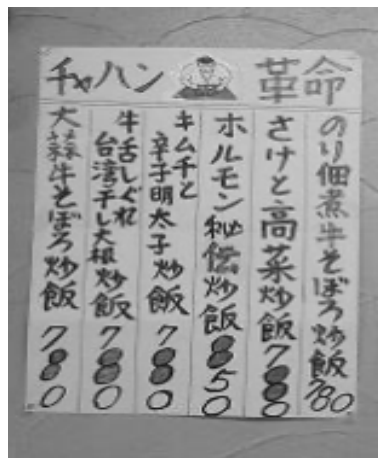 チャハン 革命
のり佃煮牛そぼろ炒飯 780
さけと高菜炒飯 780
ホルモン秘伝炒飯 850
キムチと辛子明太子炒飯 780
牛舌しぐれ台湾干し大根炒飯 780
大蒜牛そぼろ炒飯 780